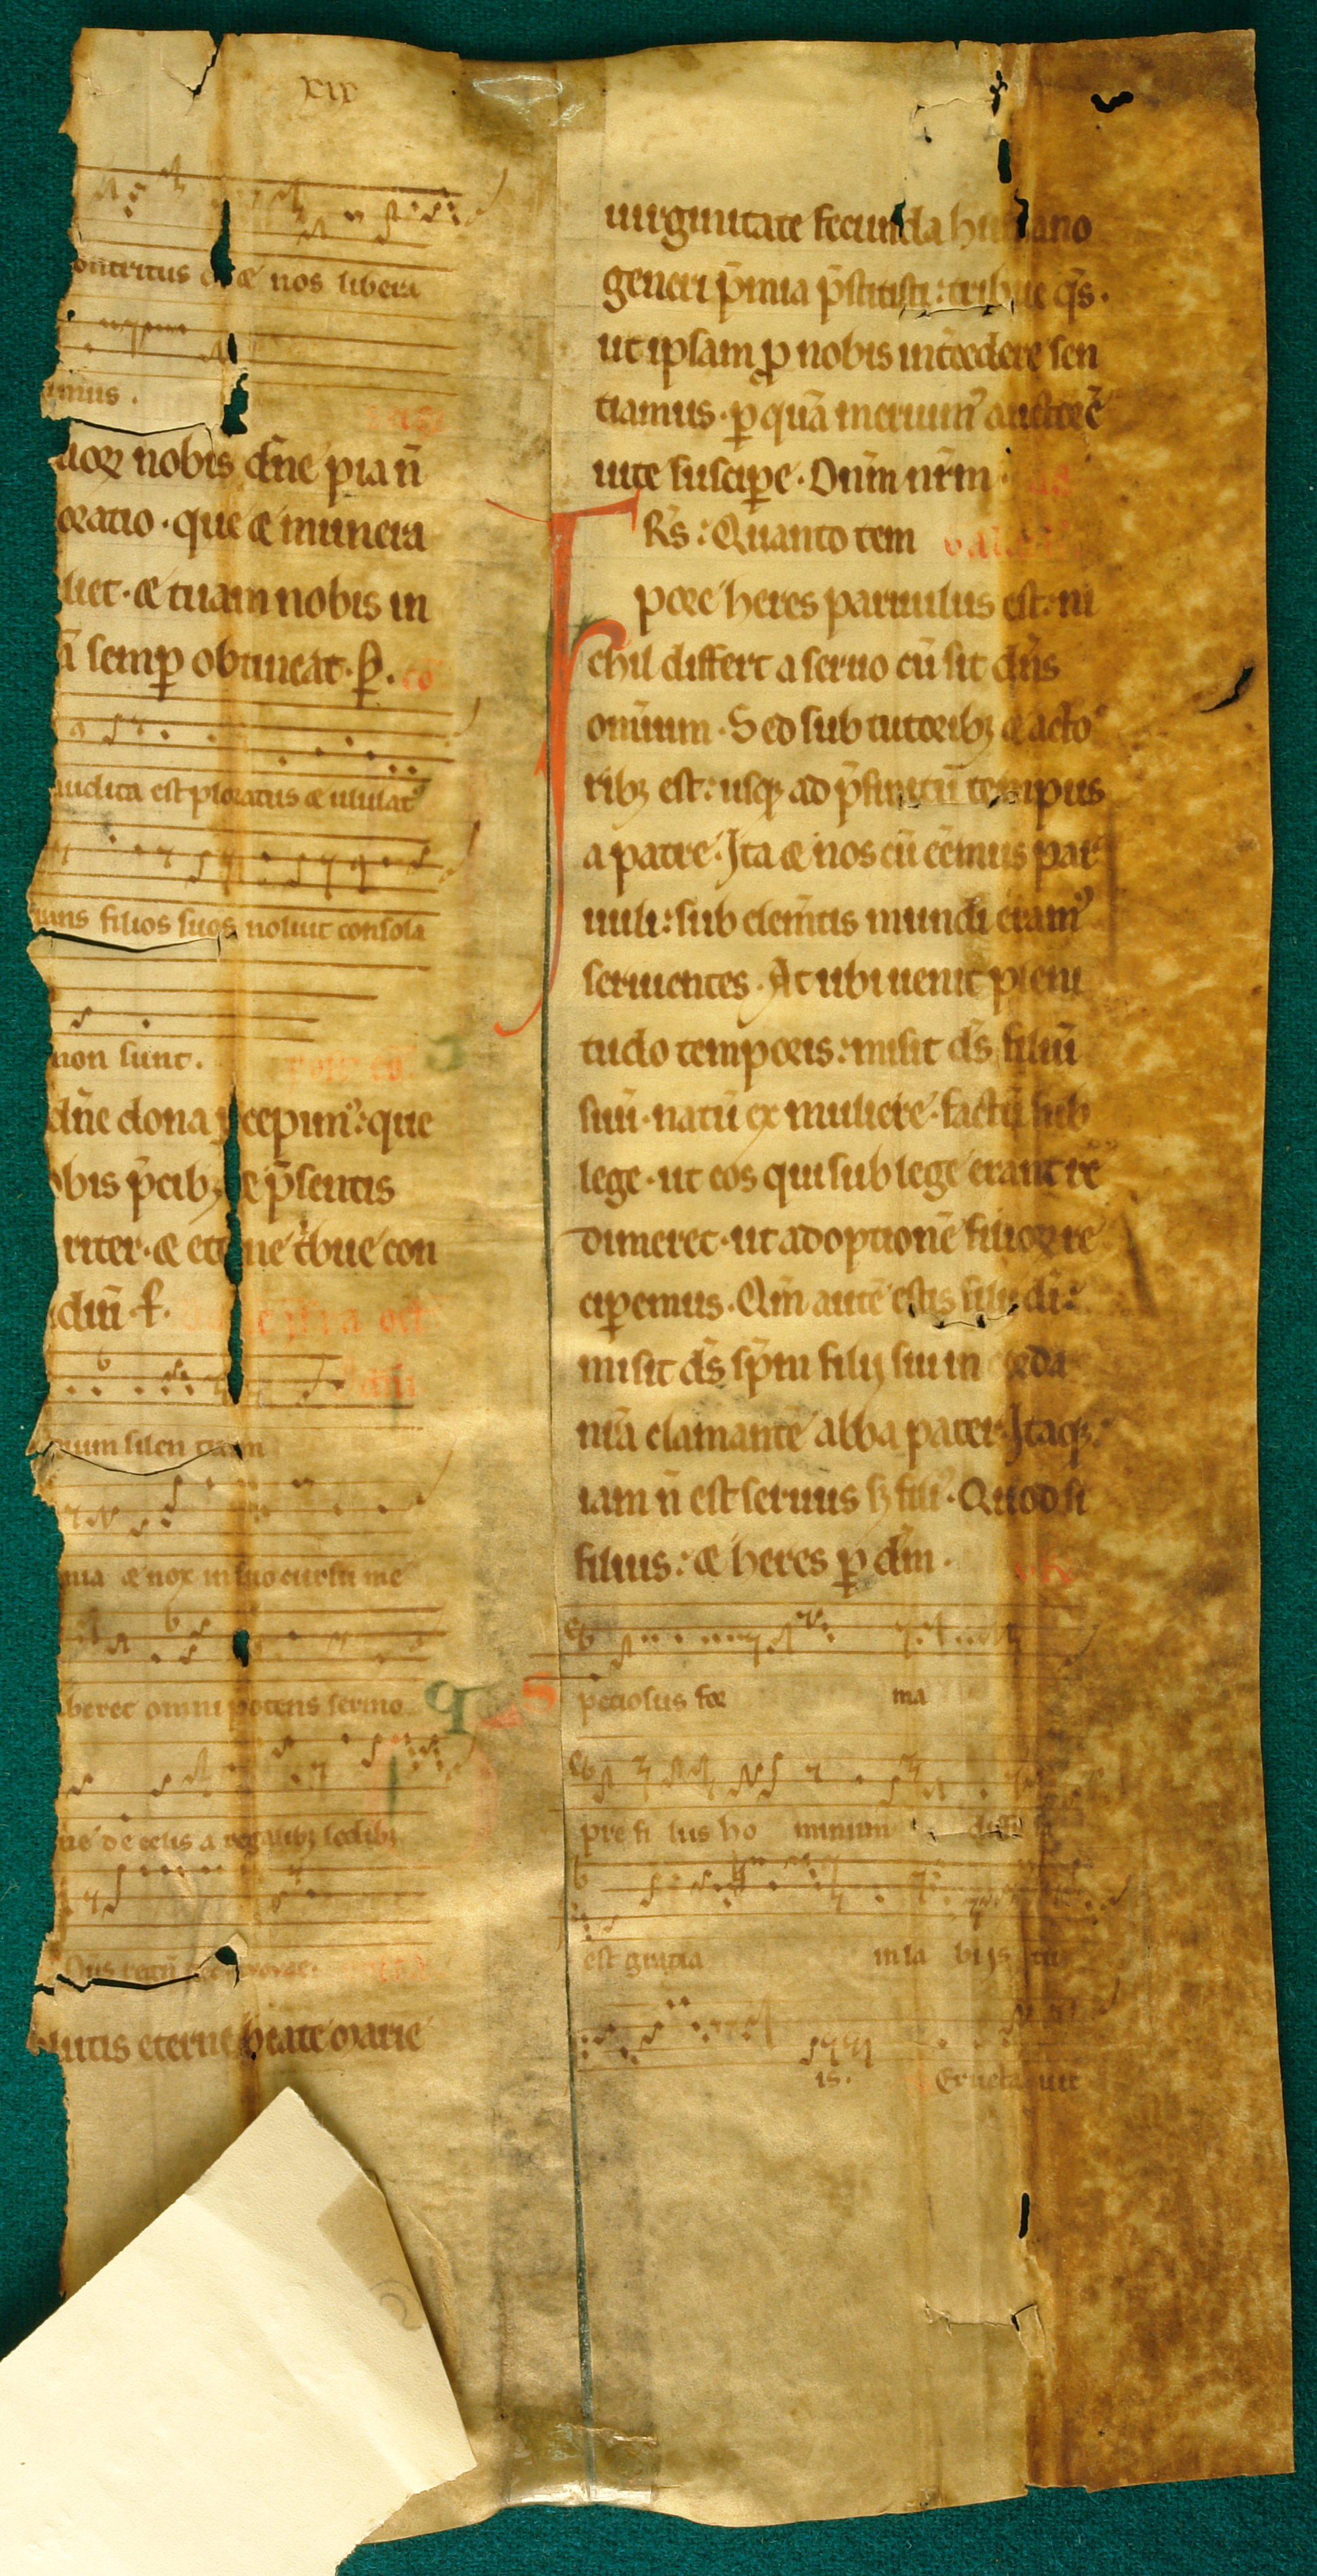 xix
ontritus & nos libera
imus.
aoꝝ nobis dn̄e pia n̄
oratio · que & munera
liet · & tuam nobis in
ā semꝑ obtineat · ꝑ. co
audita est ploratus & ululat᷒
ans filios suos noluit consola
non sunt.
dn̄e dona ꝑcepim᷒ : que
obis p̄cibꝫ & p̄sentis
riter · & et ne t̄bue con
diū · ꝑ.
ium silen tium
nia & nox in suo cursu me
beret omni potens sermo
ne de celis a regalibꝫ sedibꝫ
lutis eterne beate marie
uirginitate fecunda humano
generi p̄mia p̄stitisti : tribue q̄s ·
ut ipsam ꝓ nobis int̄cedere sen
tiamus · ꝑ quā meruim᷒ auctorē
uite suscipe · Dn̄m nr̄m ·
Rs̄ : Quanto tem
pore heres paruulus est : ni
chil differt a seruo cū sit dn̄s
omnium · Sed sub tutoribꝫ & acto
ribꝫ est : usqꝫ ad p̄finitū tempus
a patre · Ita & nos cū eēmus par
uuli : sub elem̄tis mundi eram᷒
seruientes · At ubi uenit pleni
tudo temporis : misit ds̄ filiū
suū · natū ex muliere · factū sub
lege · ut eos qui sub lege erant re
dimeret · ut adoptionē filioꝝ re
ciperemus · Qm̄ autē estis filii di :
misit ds̄ sp̄m filij sui in corda
nr̄a clamantē abba pater · Itaqꝫ
iam n̄ est seruus sꝫ fili᷒ · Quod si
filius : & heres ꝑ dm̄ ·
S peciosus for ma
pre fi lius ho minum diffu sa
est gracia in la bijs tu
is. Eructa uit